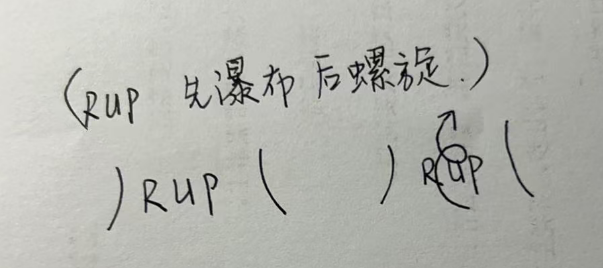 (RUP 先瀑布后螺旋.)
)RUP( )RUP(